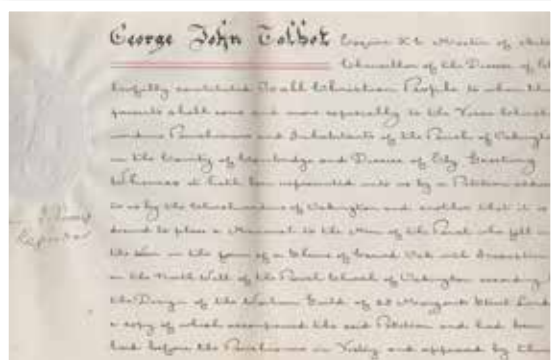 George John Talbot Esquire K C Master of Arts
Chancellor of the Diocese of El
lawfully constituted To all Christian People to whom these
presents shall come and more especially to the Vicar Church
wardens Parishioners and Inhabitants of the Parish of Oakington
in the County of Cambridge and Diocese of Ely Greeting
Whereas it hath been represented unto us by a Petition
to us by the Churchwardens of Oakington and another that it is
desired to place a Memorial to the Men of the Parish who fell in
the War in the form of a of Carved Oak with Inscription
on the North Wall of the Parish Church of Oakington according
the Design of the Guild of 28 Margaret Street Lond
a copy of which accompanied the said Petition and had been
laid before the Parishioners in Vestry and approved by them